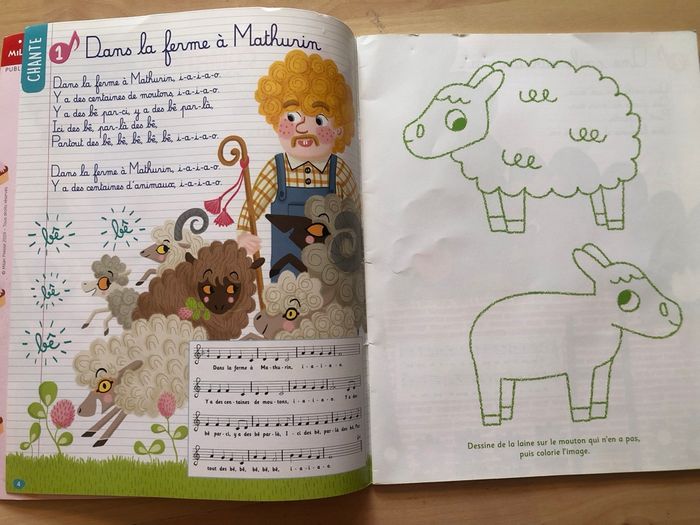 MiL
PUBLI
CHANTE
1 Dans la ferme à Mathurin
Dans la ferme à Mathurin, i-a-i-a-o.
Y a des centaines de moutons i-a-i-a-o.
Y a des bê par-ci, y a des bê par-là,
Ici des bê, par-là des bê,
Partout des bê, bê, bê, bê, bê, i-a-i-a-o.
Dans la ferme à Mathurin, i-a-i-a-o.
Y a des centaines d'animaux, i-a-i-a-o.
bê
bê
bê
bê
Dans la ferme à Ma - thu - rin, i - a - i - a - o.
Y a des cen - taines de mou - tons, i - a - i - a - o. Y a des
bê par-ci, y a des bê par-là, I - ci des bê, par-là des bê, Par
tout des bê, bê, bê, bê, i - a - i - a - o.
4
Dessine de la laine sur le mouton qui n'en a pas,
puis colorie l'image.